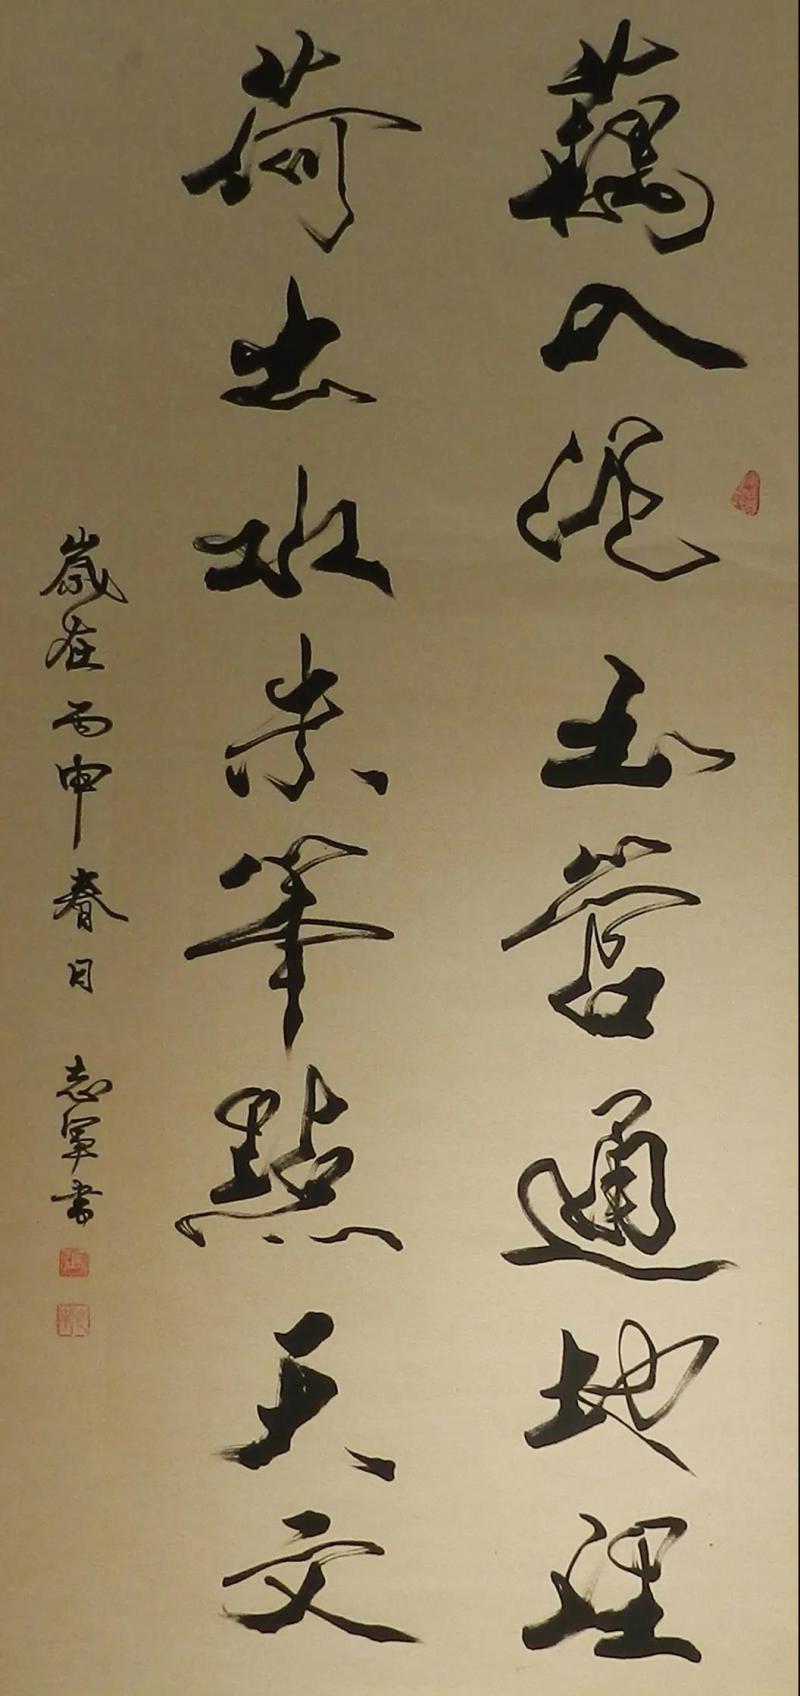 藕入泥玉管通地理
荷出水朱筆點天文
歲在丙申春日 志軍書